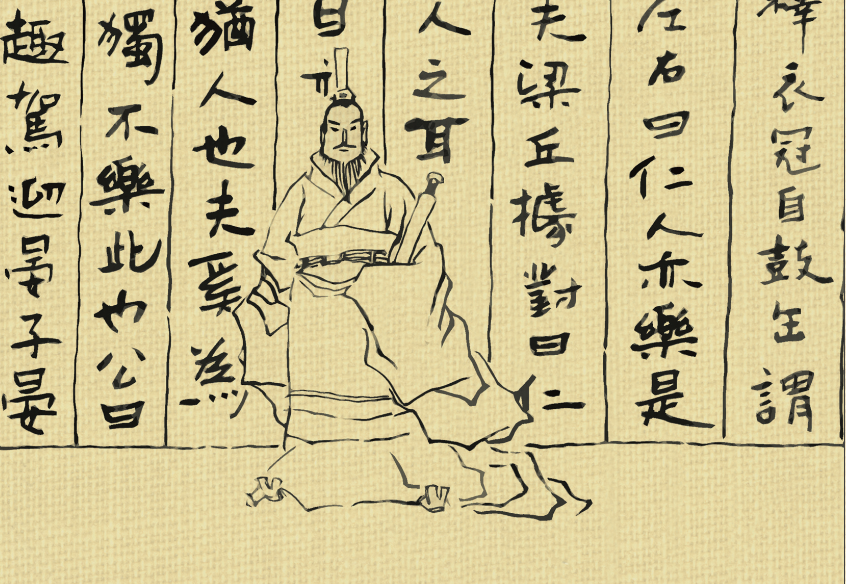 釋衣冠自鼓缶謂
左右曰仁人亦樂是
夫梁丘據對曰仁
人之耳
目
猶人也夫奚為
獨不樂此也公曰
趣駕迎晏子晏